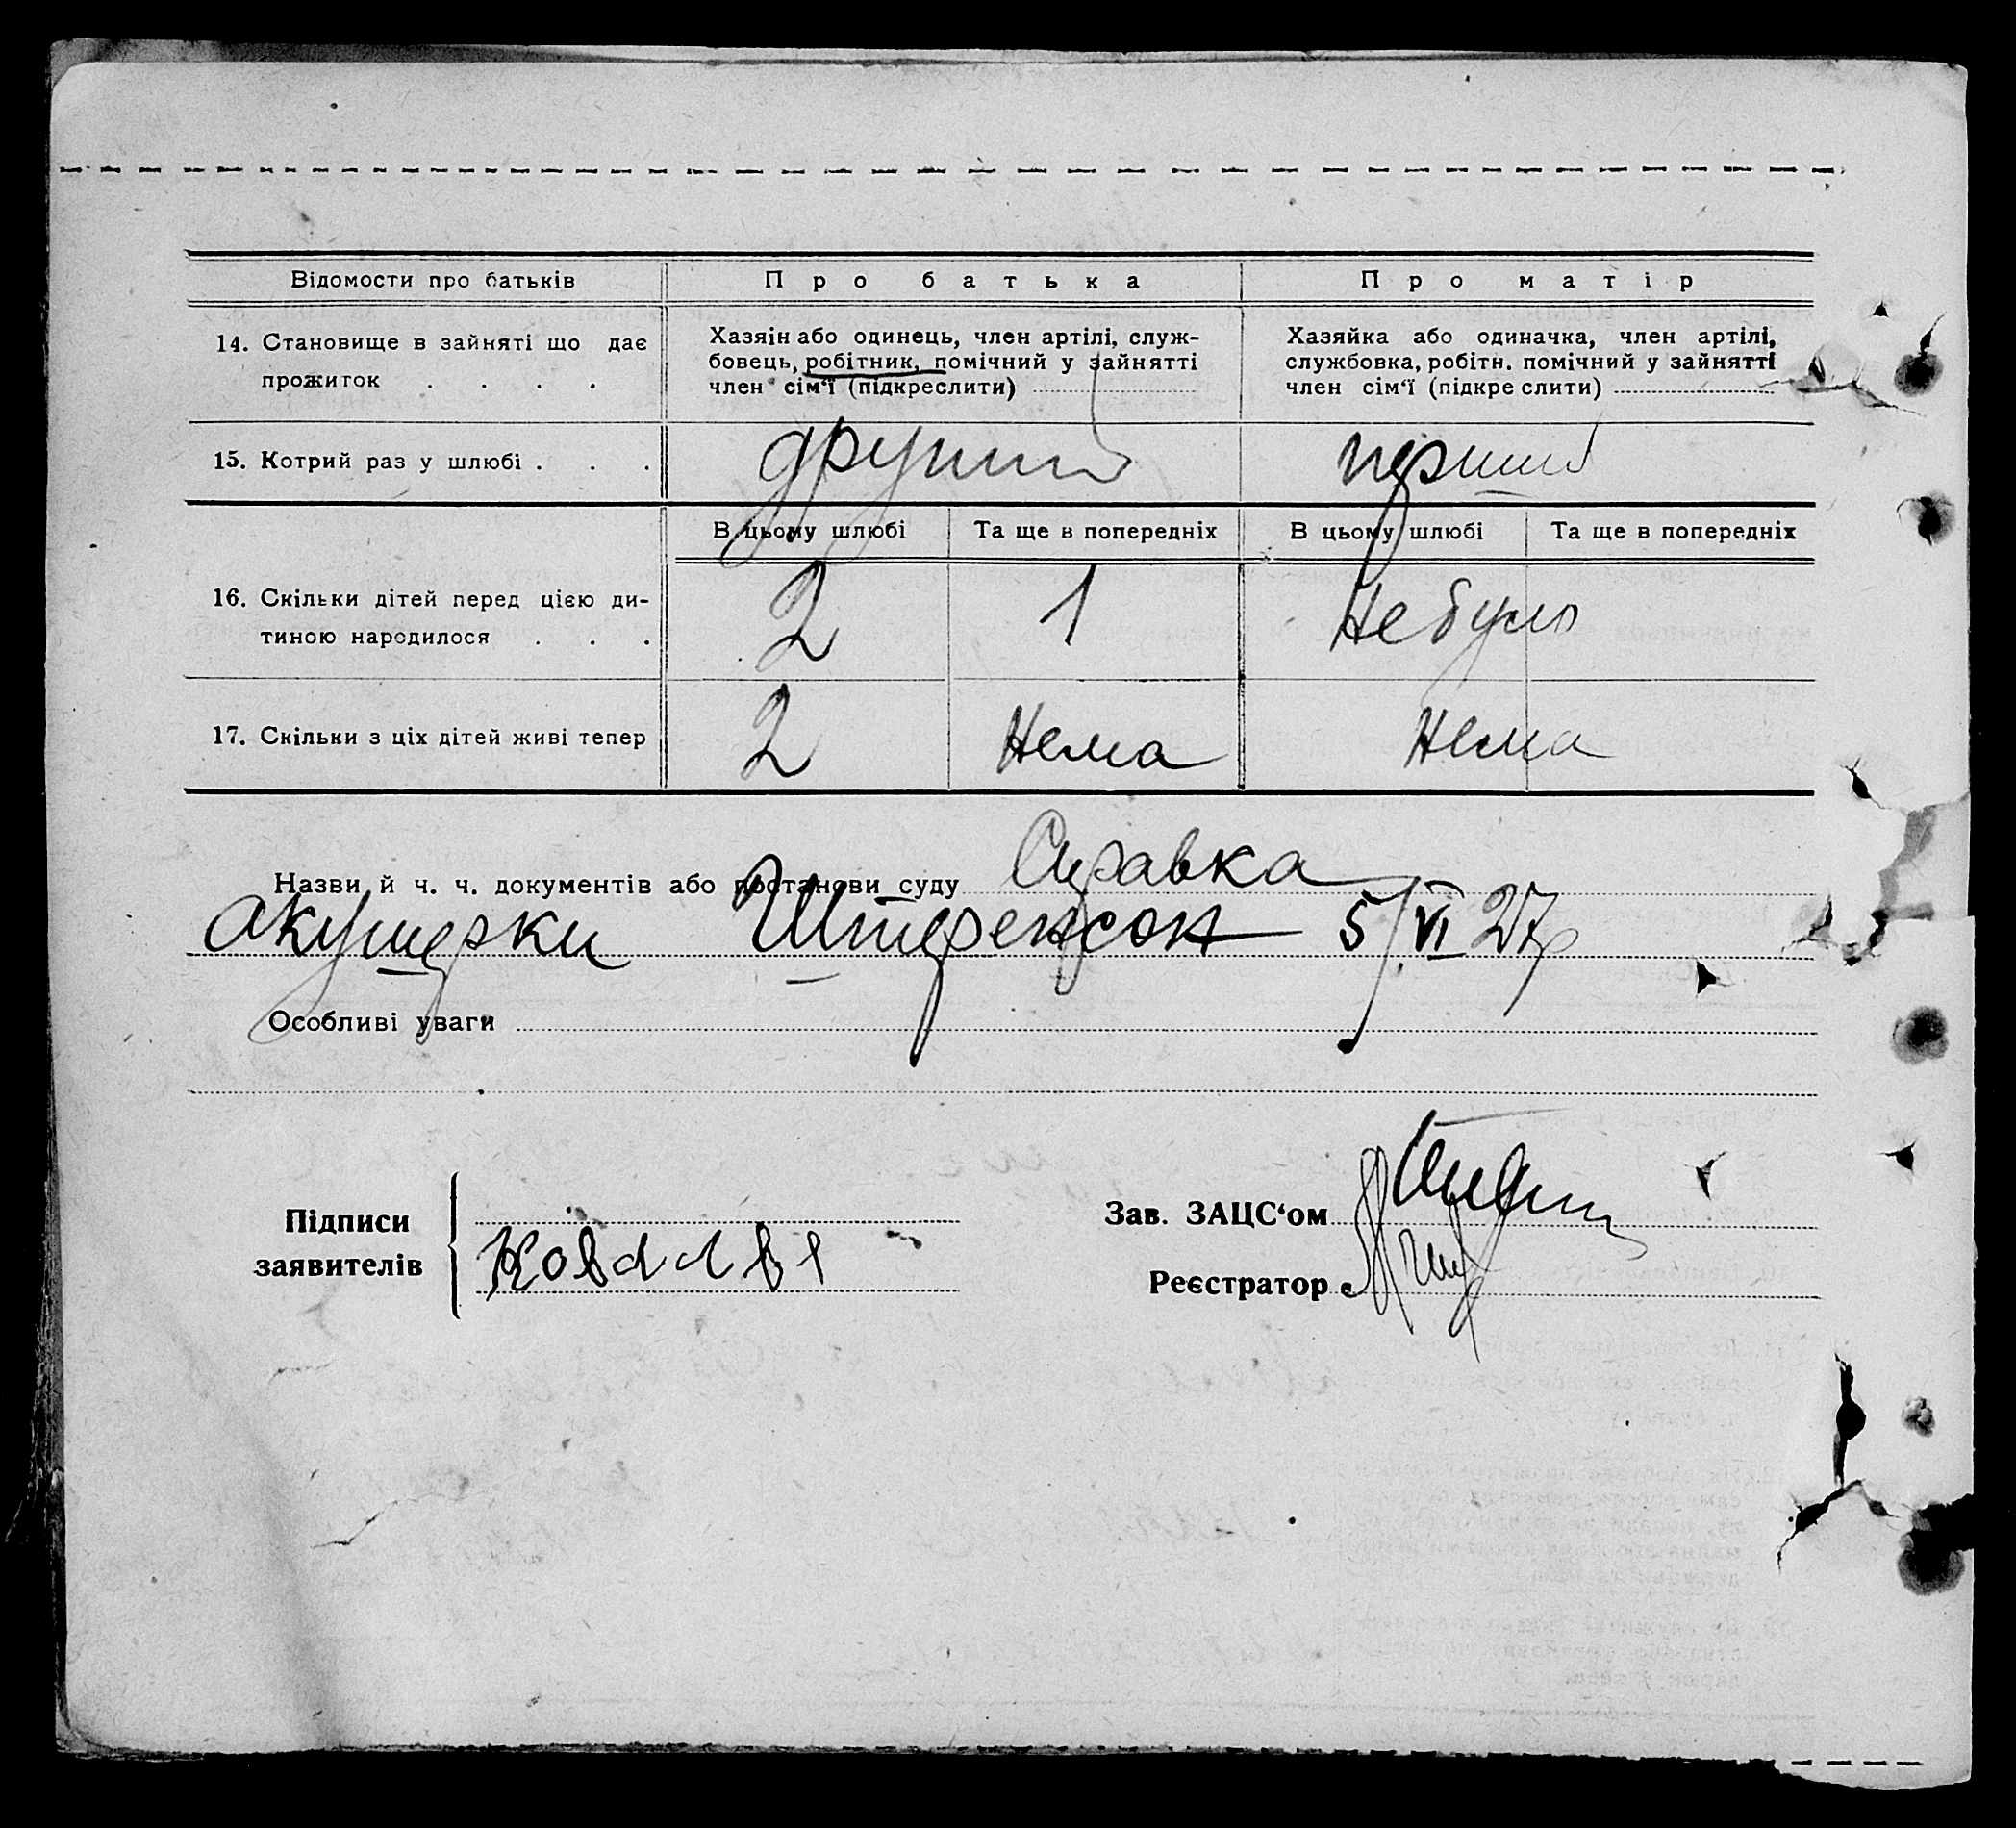 Відомости про батьків Про батька Про матір
14. Становище в зайняті що дає
прожиток . . . .
Хазяін або одинець, член артілі, служ-
бовець, робітник, помічний у зайнятті
член сім‘ї (підкреслити)
Хазяйка або одиначка, член артілі,
службовка, робітн. помічний у зайнятті
член сім‘ї (підкре слити)
15. Котрий раз у шлюбі . . . другий перший
В цьому шлюбі Та ще в попередніх В цьому шлюбі Та ще в попередніх
16. Скільки дітей перед цією ди-
тиною народилося . . .
2 1 Не було
17. Скільки з ціх дітей живі тепер 2 Нема Нема
Назви й ч. ч. документів або постанови суду Справка
акушерки 5/VI 27р
Особливі уваги
Підписи
заявителів
Зав. ЗАЦС‘ом
Реєстратор